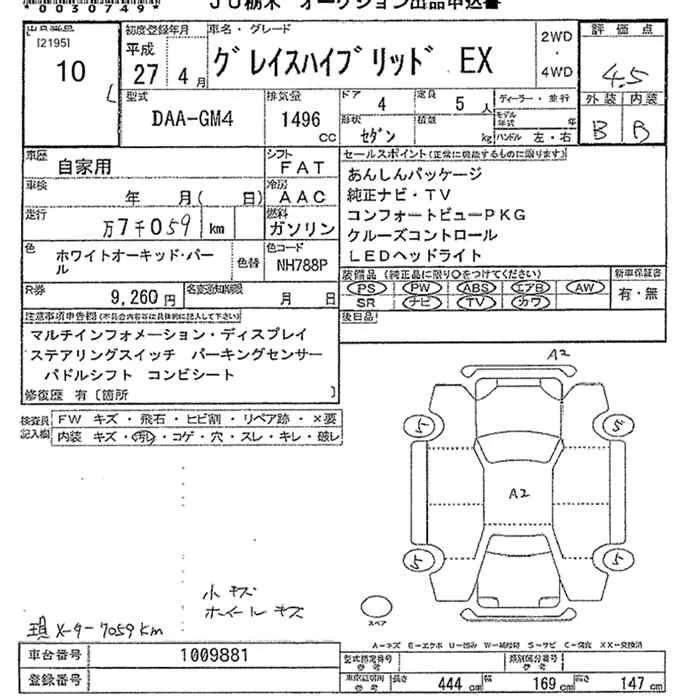 *0030749*
JU栃木 オークション出品申込書
出品番号 [2195]
10
初度登録年月
平成
27年4月
車名・グレード
グレイスハイブリッド EX
2WD
・
4WD
評価点
4.5
外装 内装
B B
型式
DAA-GM4
排気量
1496 cc
ドア 4
定員 5人
形状 セダン
積載 kg
ディーラー・並行
モデル年式 年
ハンドル 左・右
車歴 自家用
シフト FAT
車検 年 月( 日)
冷房 AAC
走行 万7千059 km
燃料 ガソリン
色 ホワイトオーキッド・パール
色替
色コード NH788P
R券 9,260円
名変通知期限 月 日
セールスポイント(正常に機能するものに限ります)
あんしんパッケージ
純正ナビ・TV
コンフォートビューPKG
クルーズコントロール
LEDヘッドライト
装備品(純正品に限り〇をつけてください)
PS PW ABS エアB AW
SR ナビ TV カワ
新車保証書
有・無
後日品
注意事項申告欄(不具合内容等は具体的に記入して下さい)
マルチインフォメーション・ディスプレイ
ステアリングスイッチ パーキングセンサー
パドルシフト コンビシート
修復歴 有〔箇所 〕
検査員記入欄
FW キズ・飛石・ヒビ割・リペア跡・×要
内装 キズ・汚レ・コゲ・穴・スレ・キレ・破レ
A2
5 5
A2
5 5
スペア
小キズ
ホイールキズ
現メーター7059km
A-キズ E-エクボ U-凹み W-補修跡 S-サビ C-腐食 XX-交換済
車台番号 1009881
登録番号
型式指定番号 参考
類別区分番号 参考
車両証明用 参考
長さ 444cm 幅 169cm 高さ 147cm